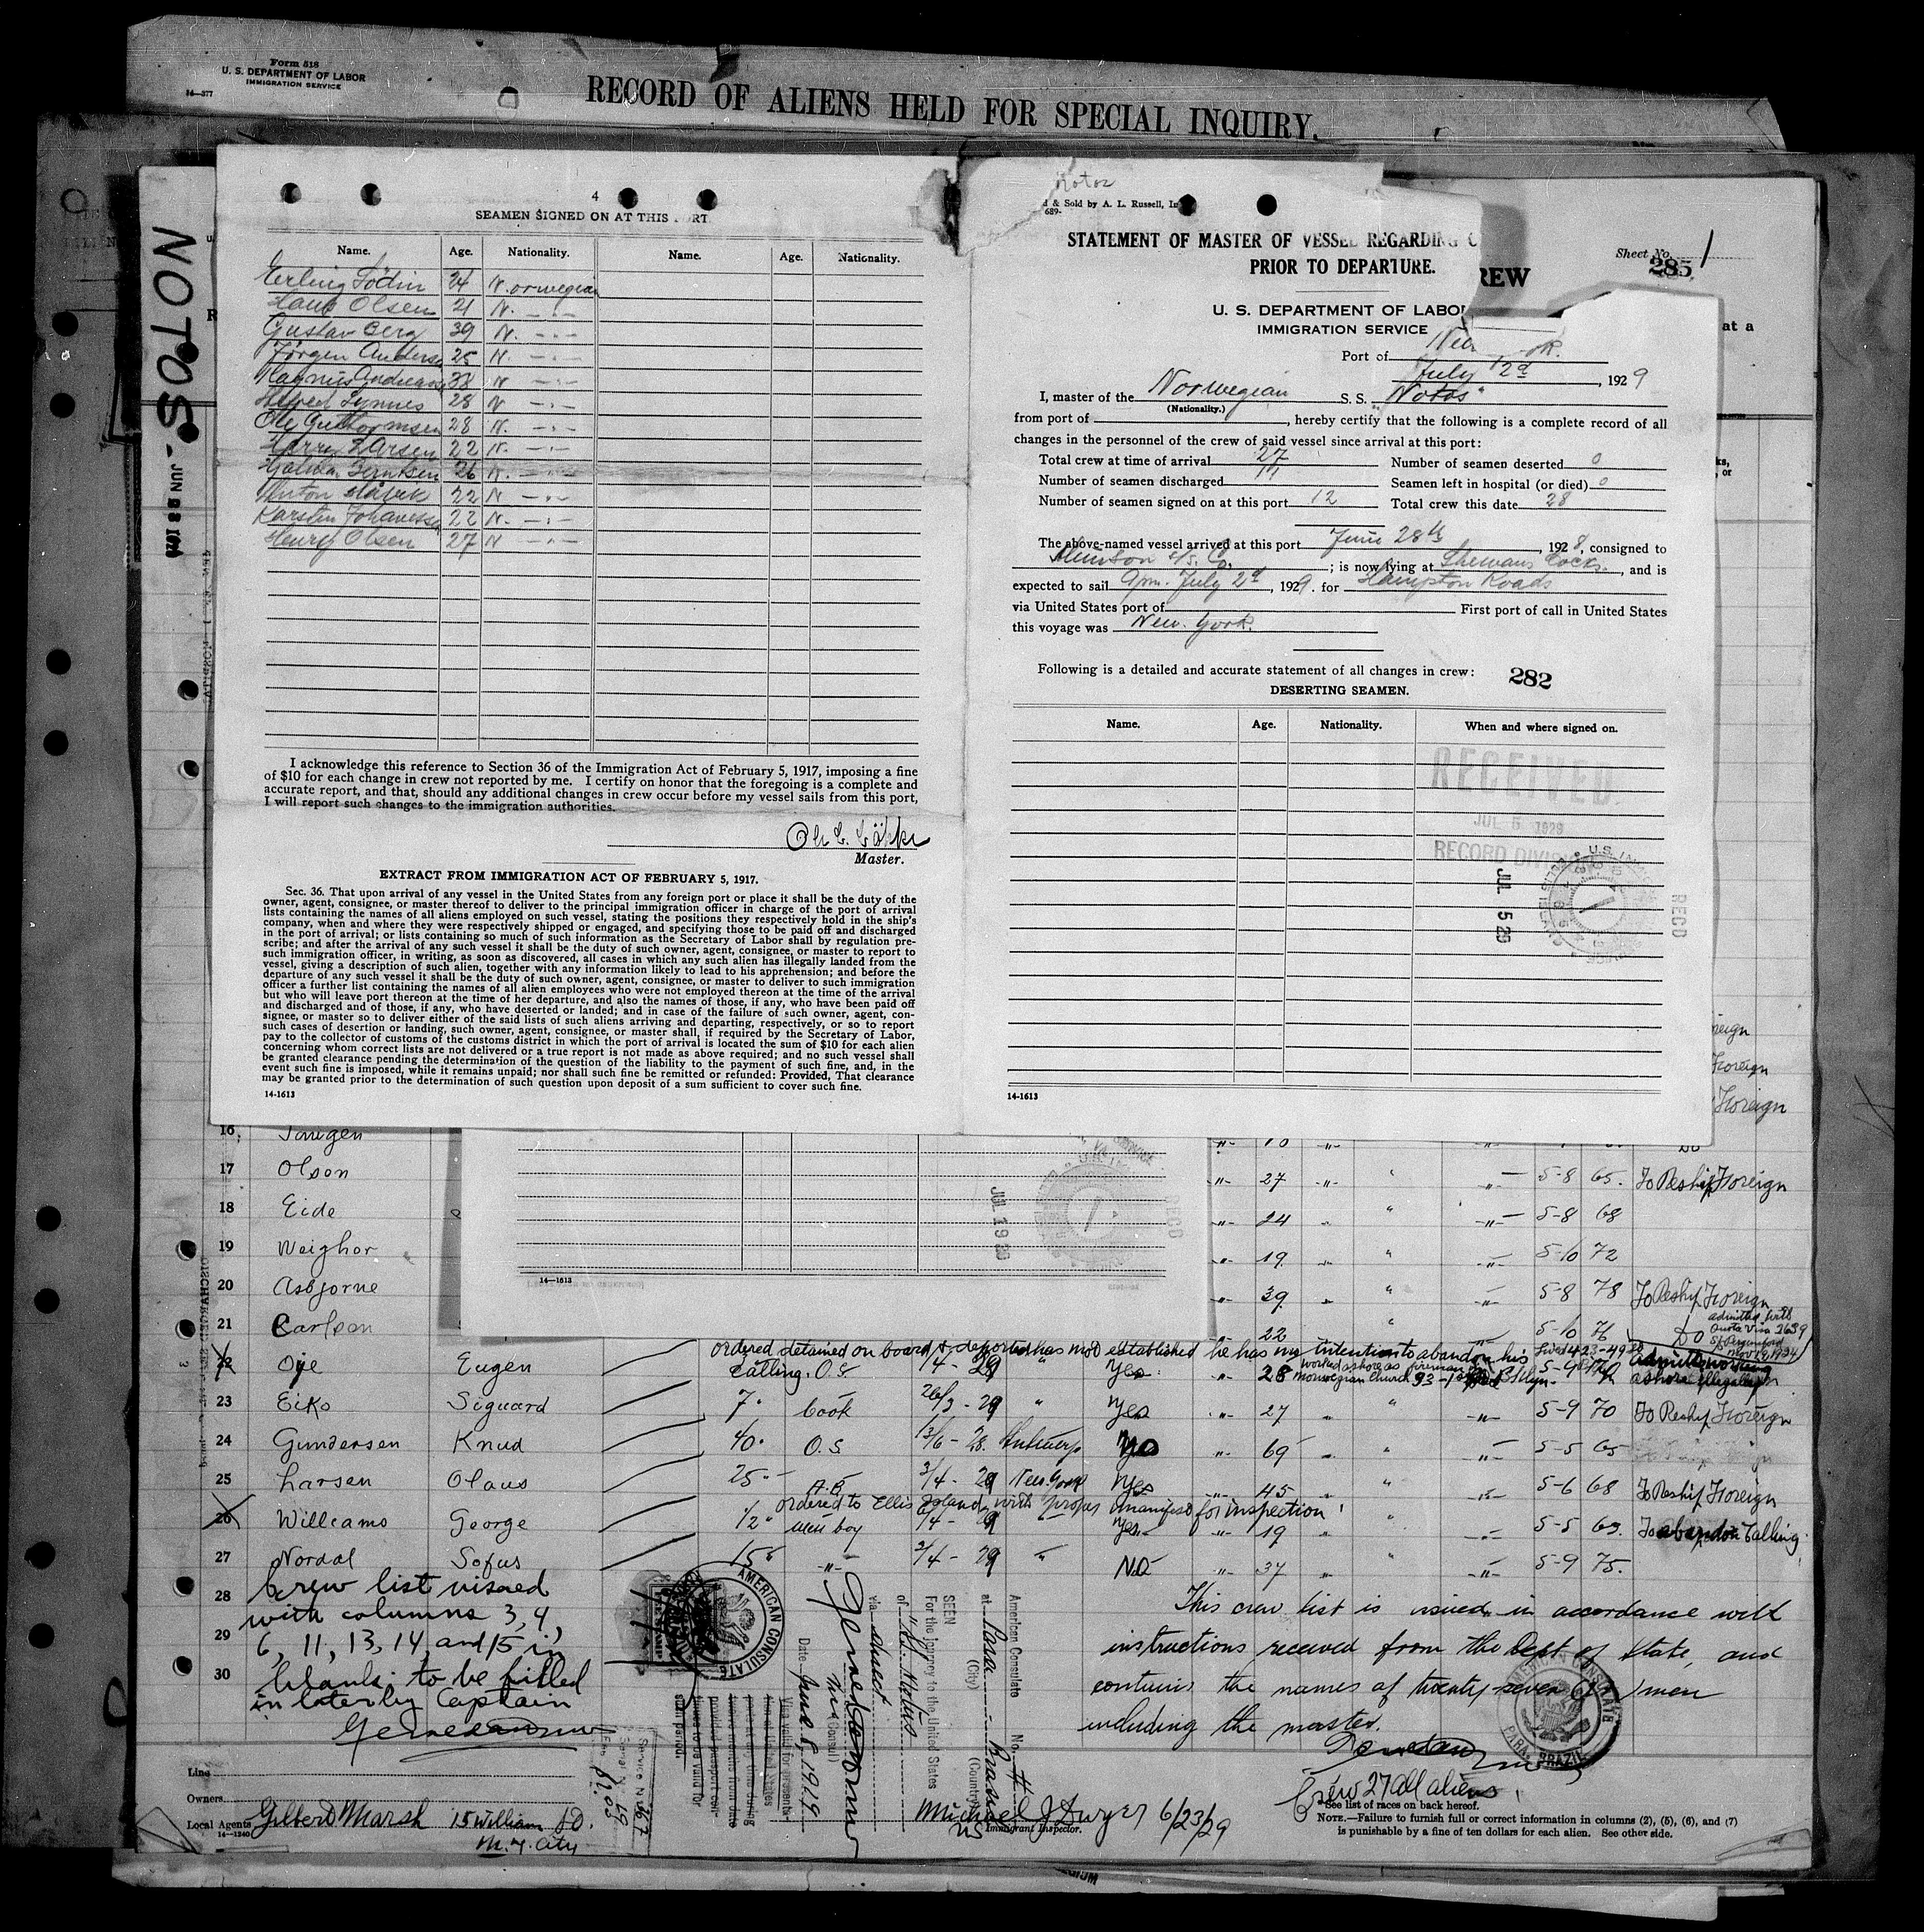 Form 518
U. S. DEPARTMENT OF LABOR
IMMIGRATION SERVICE
14—377
RECORD OF ALIENS HELD FOR SPECIAL INQUIRY.
NOTOS.
4
SEAMEN SIGNED ON AT THIS RT.
Name. Age. Nationality. Name. Age. Nationality.
Erling Södin 24 Norwegian
Hans Olsen 21 N. -"-
Gustav Berg 39 N. -"-
Jörgen Anderse 25 N. -"-
Magnus Andreas 38 N -"-
Alfred Lynnes 28 N -"-
Ole Guttormsen 28 N. -"-
Harry Larsen 22 N. -"-
Berntsen 26 N. -"-
Anton 22 N -"-
Karsten Johanessen 22 N. -"-
Henry Olsen 27 N -"-
I acknowledge this reference to Section 36 of the Immigration Act of February 5, 1917, imposing a fine
of $10 for each change in crew not reported by me. I certify on honor that the foregoing is a complete and
accurate report, and that, should any additional changes in crew occur before my vessel sails from this port,
I will report such changes to the immigration authorities.
Master.
EXTRACT FROM IMMIGRATION ACT OF FEBRUARY 5, 1917.
Sec. 36. That upon arrival of any vessel in the United States from any foreign port or place it shall be the duty of the
owner, agent, consignee, or master thereof to deliver to the principal immigration officer in charge of the port of arrival
lists containing the names of all aliens employed on such vessel, stating the positions they respectively hold in the ship's
company, when and where they were respectively shipped or engaged, and specifying those to be paid off and discharged
in the port of arrival; or lists containing so much of such information as the Secretary of Labor shall by regulation pre-
scribe; and after the arrival of any such vessel it shall be the duty of such owner, agent, consignee, or master to report to
such immigration officer, in writing, as soon as discovered, all cases in which any such alien has illegally landed from the
vessel, giving a description of such alien, together with any information likely to lead to his apprehension; and before the
departure of any such vessel it shall be the duty of such owner, agent, consignee, or master to deliver to such immigration
officer a further list containing the names of all alien employees who were not employed thereon at the time of the arrival
but who will leave port thereon at the time of her departure, and also the names of those, if any, who have been paid off
and discharged and of those, if any, who have deserted or landed; and in case of the failure of such owner, agent, con-
signee, or master so to deliver either of the said lists of such aliens arriving and departing, respectively, or so to report
such cases of desertion or landing, such owner, agent, consignee, or master shall, if required by the Secretary of Labor,
pay to the collector of customs of the customs district in which the port of arrival is located the sum of $10 for each alien
concerning whom correct lists are not delivered or a true report is not made as above required; and no such vessel shall
be granted clearance pending the determination of the question of the liability to the payment of such fine, and, in the
event such fine is imposed, while it remains unpaid; nor shall such fine be remitted or refunded: Provided, That clearance
may be granted prior to the determination of such question upon deposit of a sum sufficient to cover such fine.
14-1613
Notos
d & Sold by A. L. Russell, In
689-
STATEMENT OF MASTER OF VESSEL REGARDING C
PRIOR TO DEPARTURE.
REW
Sheet No. 1
285
at a
U. S. DEPARTMENT OF LABOR
IMMIGRATION SERVICE
Port of New ork.
July 2d, 1929
I, master of the Norwegian S. S. "Notos"
(Nationality.)
from port of , hereby certify that the following is a complete record of all
changes in the personnel of the crew of said vessel since arrival at this port:
Total crew at time of arrival 27 Number of seamen deserted 0
Number of seamen discharged 11 Seamen left in hospital (or died) 0
Number of seamen signed on at this port 12 Total crew this date 28
The above-named vessel arrived at this port June 28th, 1928, consigned to
Munson S/S. Co. ; is now lying at Shewans Docks, and is
expected to sail 9pm. July 2d, 1929. for Hampton Roads
via United States port of First port of call in United States
this voyage was New York.
Following is a detailed and accurate statement of all changes in crew: 282
DESERTING SEAMEN.
Name. Age. Nationality. When and where signed on.
RECEIVED
JUL 5 1929
RECORD DIVISION
JUL 5 29
RECD
14-1613
Foreign
Foreign
16
17 Olson 27 5-8 65. To Reship Foreign
18 Eide 24 5-8 68
19 Neighor 19 5-10 72
20 Asbjorne 39 5-8 78 To Reship Foreign
21 Carlson 22 5-10 76 do
JUL 19 29
RECD
14—1613
ordered detained on board & deported has not established he has no intention to abandon his
calling.
22 Oje Eugen O.S. 1/4 - 29 " Yes 28
admits working
ashore illegally
23 Eiko Siguard 7" Cook 26/3 - 29 " Yes 27 5-9 70 To Reship Foreign
24 Gundersen Knud 40" O.S 13/6 - 28. Antwerp 69 5-5 65
25 Larsen Olaus 25" A.B 3/4 - 29 New York Yes 45 5-6 68 To Reship Foreign
ordered to Ellis Island with proper manifest for inspection
26 Williams George 1/2" mess boy 1/4 - 29 Yes 19 5-5 63. To abandon Calling
27 Nordal Sofus 15" -"- 2/4 - 29 " No 37 5-9 75.
28
29
30
Crew list visaed
with columns 3, 4,
6, 11, 13, 14, and 15 in
blank; to be filled
in later by Captain
AMERICAN CONSULATE
American Consulate No. 4
at Para - Brasil
(City) (Country)
SEEN
For the journey to the United States
of
via direct
Date June 8, 1919
This crew list is visaed in accordance with
instructions received from the Dept of State, and
contains the names of twenty-seven (27) men
including the master.
AMERICAN CONSULATE
PARA, BRAZIL
Crew 27 all aliens
Line
Owners
Local Agents Gilbert Marsh 15 William St.
N.Y. City
14—1240
Michael J Dwyer 6/23/29
Immigrant Inspector.
See list of races on back hereof.
NOTE.—Failure to furnish full or correct information in columns (2), (5), (6), and (7)
is punishable by a fine of ten dollars for each alien. See other side.